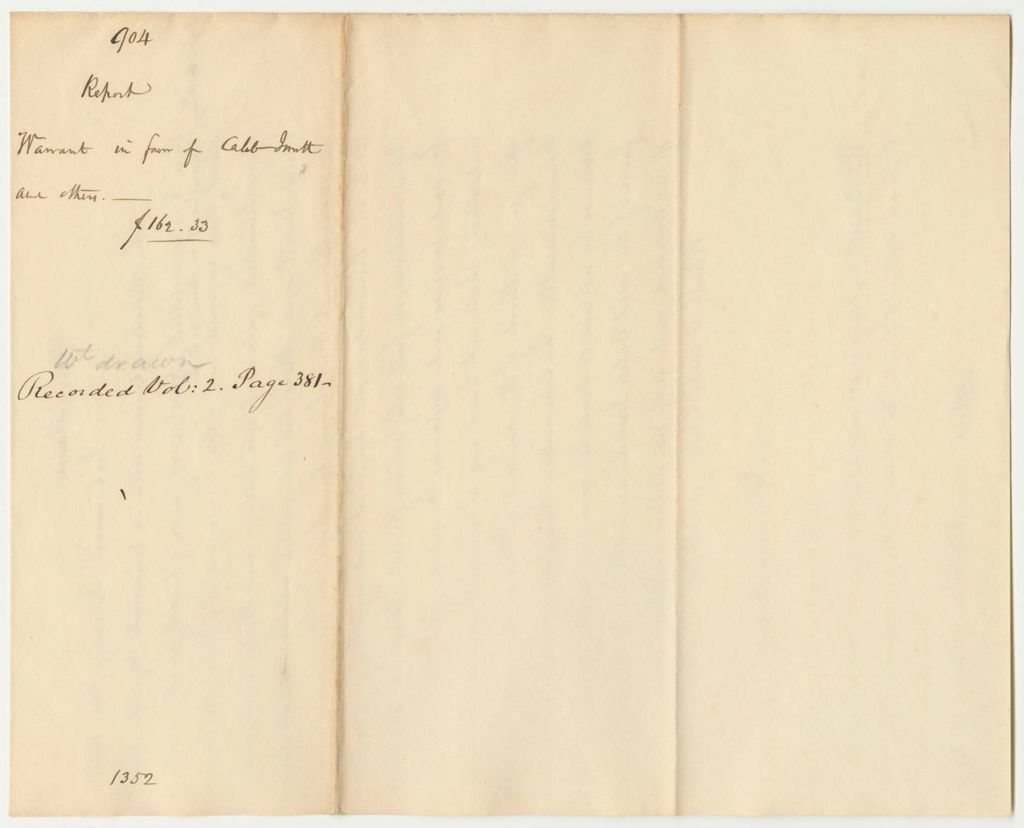 904
Report
Warrant in favor of Caleb Smith
and others. —
$162.33
Wt drawn
Recorded Vol: 2. Page 381—
1352